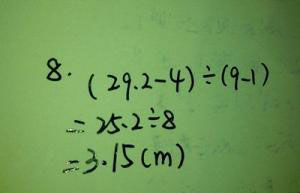 8. (29.2-4)÷(9-1)
=25.2÷8
=3.15(m)